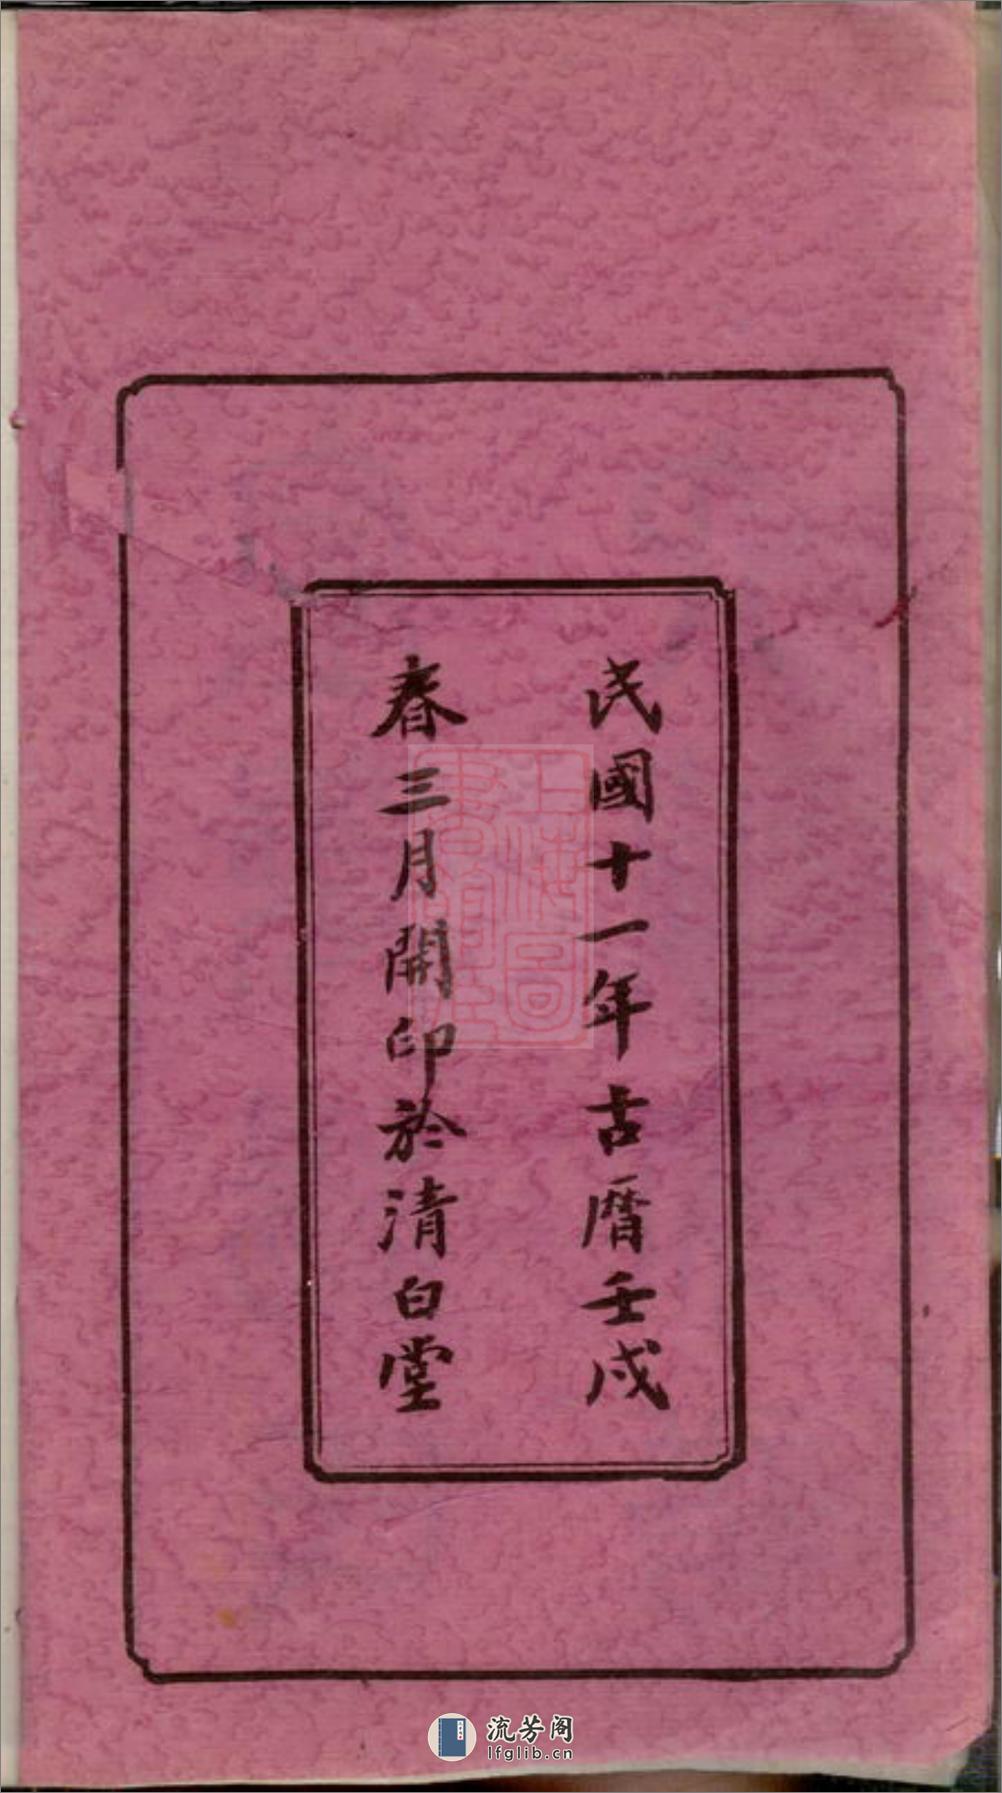 民國十一年古曆壬戌
春三月開印於清白堂
上海圖書館藏
流芳阁
lfglib.cn